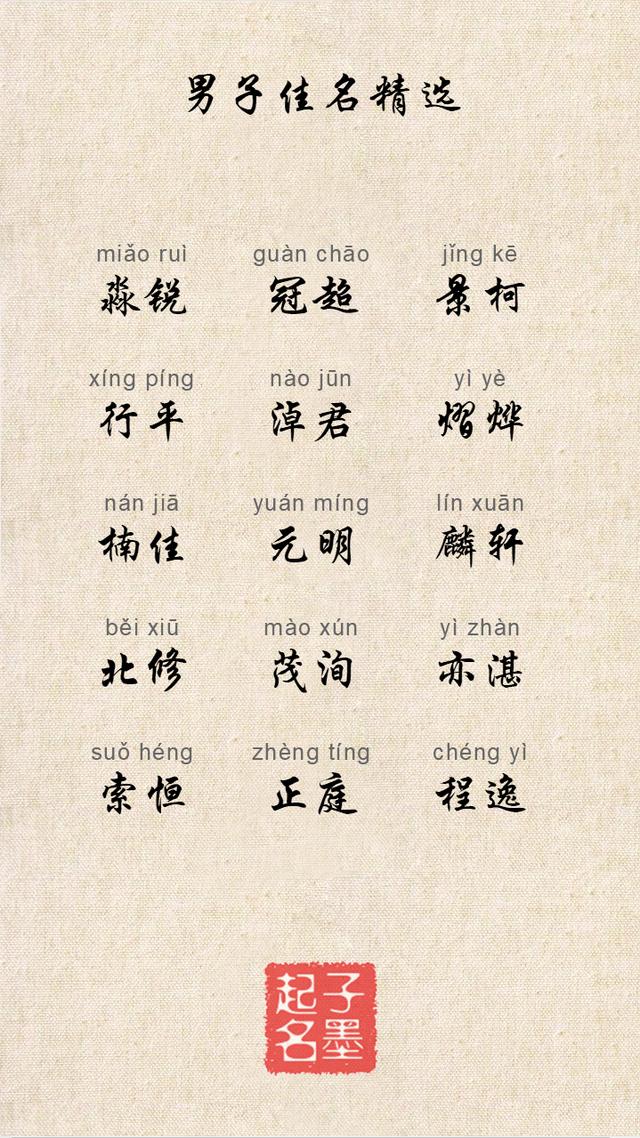 男子佳名精选
miǎo ruì guàn chāo jǐng kē
淼锐 冠超 景柯
xíng píng nào jūn yì yè
行平 淖君 熠烨
nán jiā yuán míng lín xuān
楠佳 元明 麟轩
běi xiū mào xún yì zhàn
北修 茂洵 亦湛
suǒ héng zhèng tíng chéng yì
索恒 正庭 程逸
子墨
起名